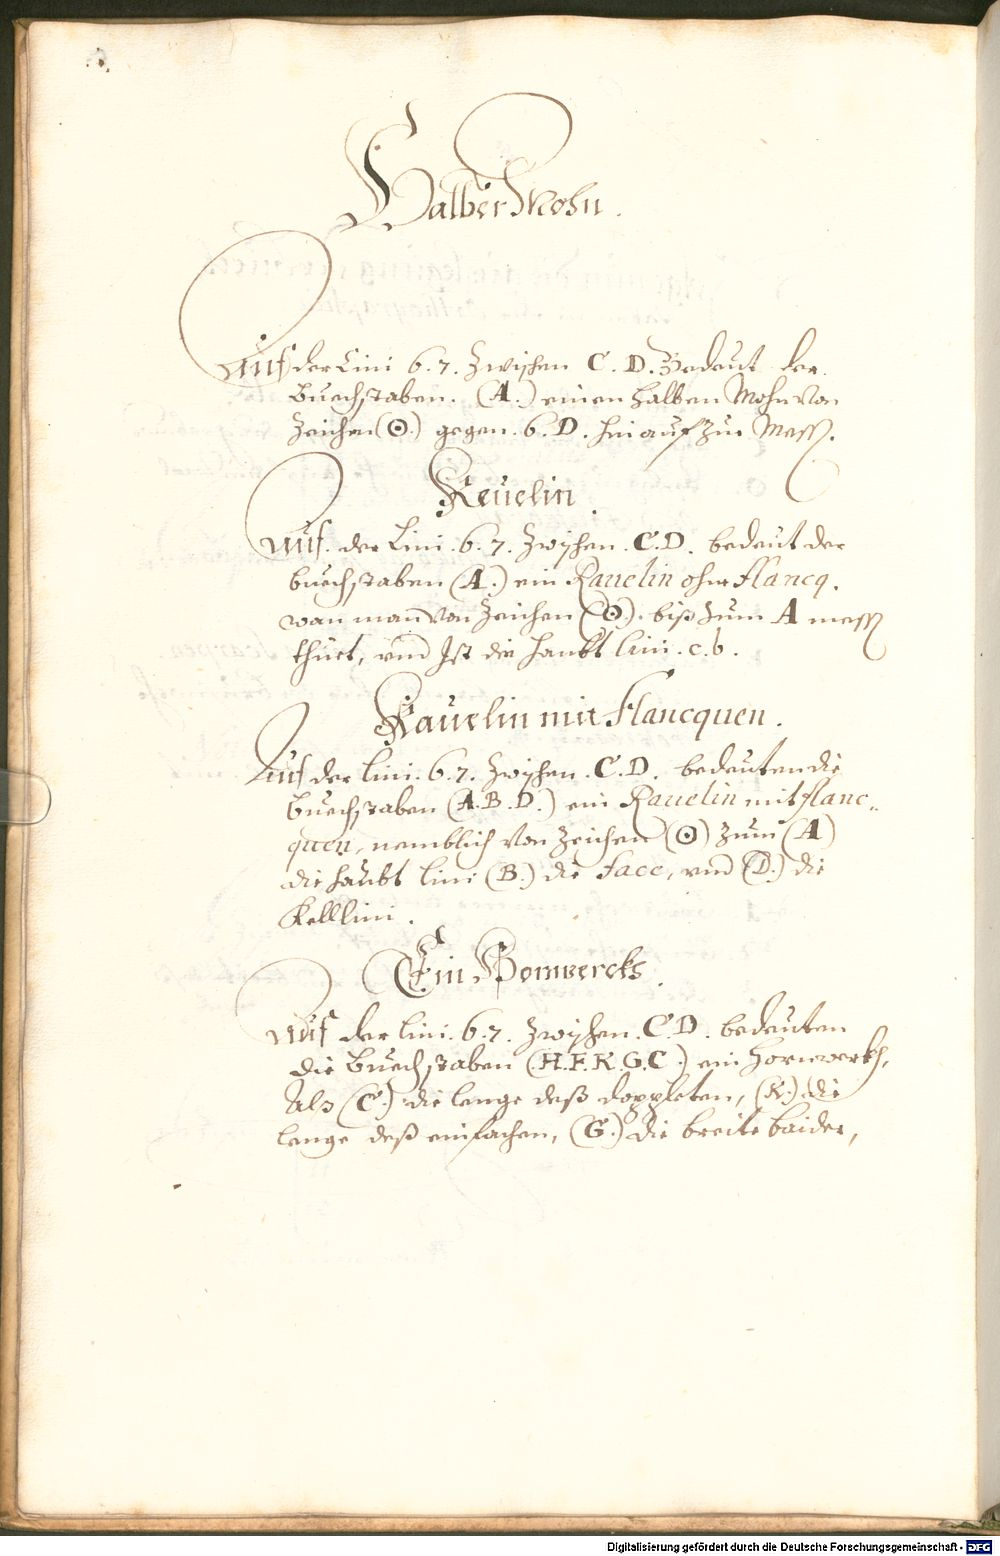 Halber Mohn.
Auf der Lini 6. 7. Zwischen C. D. Bedeut der
Buechstaben. (A.) einen halben Mohn Von
Zeichen (☉.) gegen. 6. D. hinauf zur Mess.
Reuelin.
Auf. der Lini. 6. 7. Zwischen. C. D. bedeut der
buechstaben (A.) ein Rauelin ohne flancq.
wan man Von Zeichen (☉.). biß zum A mess
thuet, und Ist die haubt lini. c. b.
Rauelin mit Flancquen.
Auf der lini. 6. 7. Zwischen. C. D. bedeuten die
Buechstaben (A. B. D.) ein Rauelin mit flanc„
quen, nemblich Von Zeichen (☉) Zum (A)
die haubt lini (B.) die Face, und (D.) die
Kelllini.
Ein Bomwercks.
Auf der lini. 6. 7. Zwischen. C. D. bedeuten
die Buechstaben (H. F. K. G. C.) ein hornwerkh,
Als (C.) die lenge deß doppleten, (K.) die
lenge deß einfachen, (G.) die breite baider,
Digitalisierung gefördert durch die Deutsche Forschungsgemeinschaft - DFG